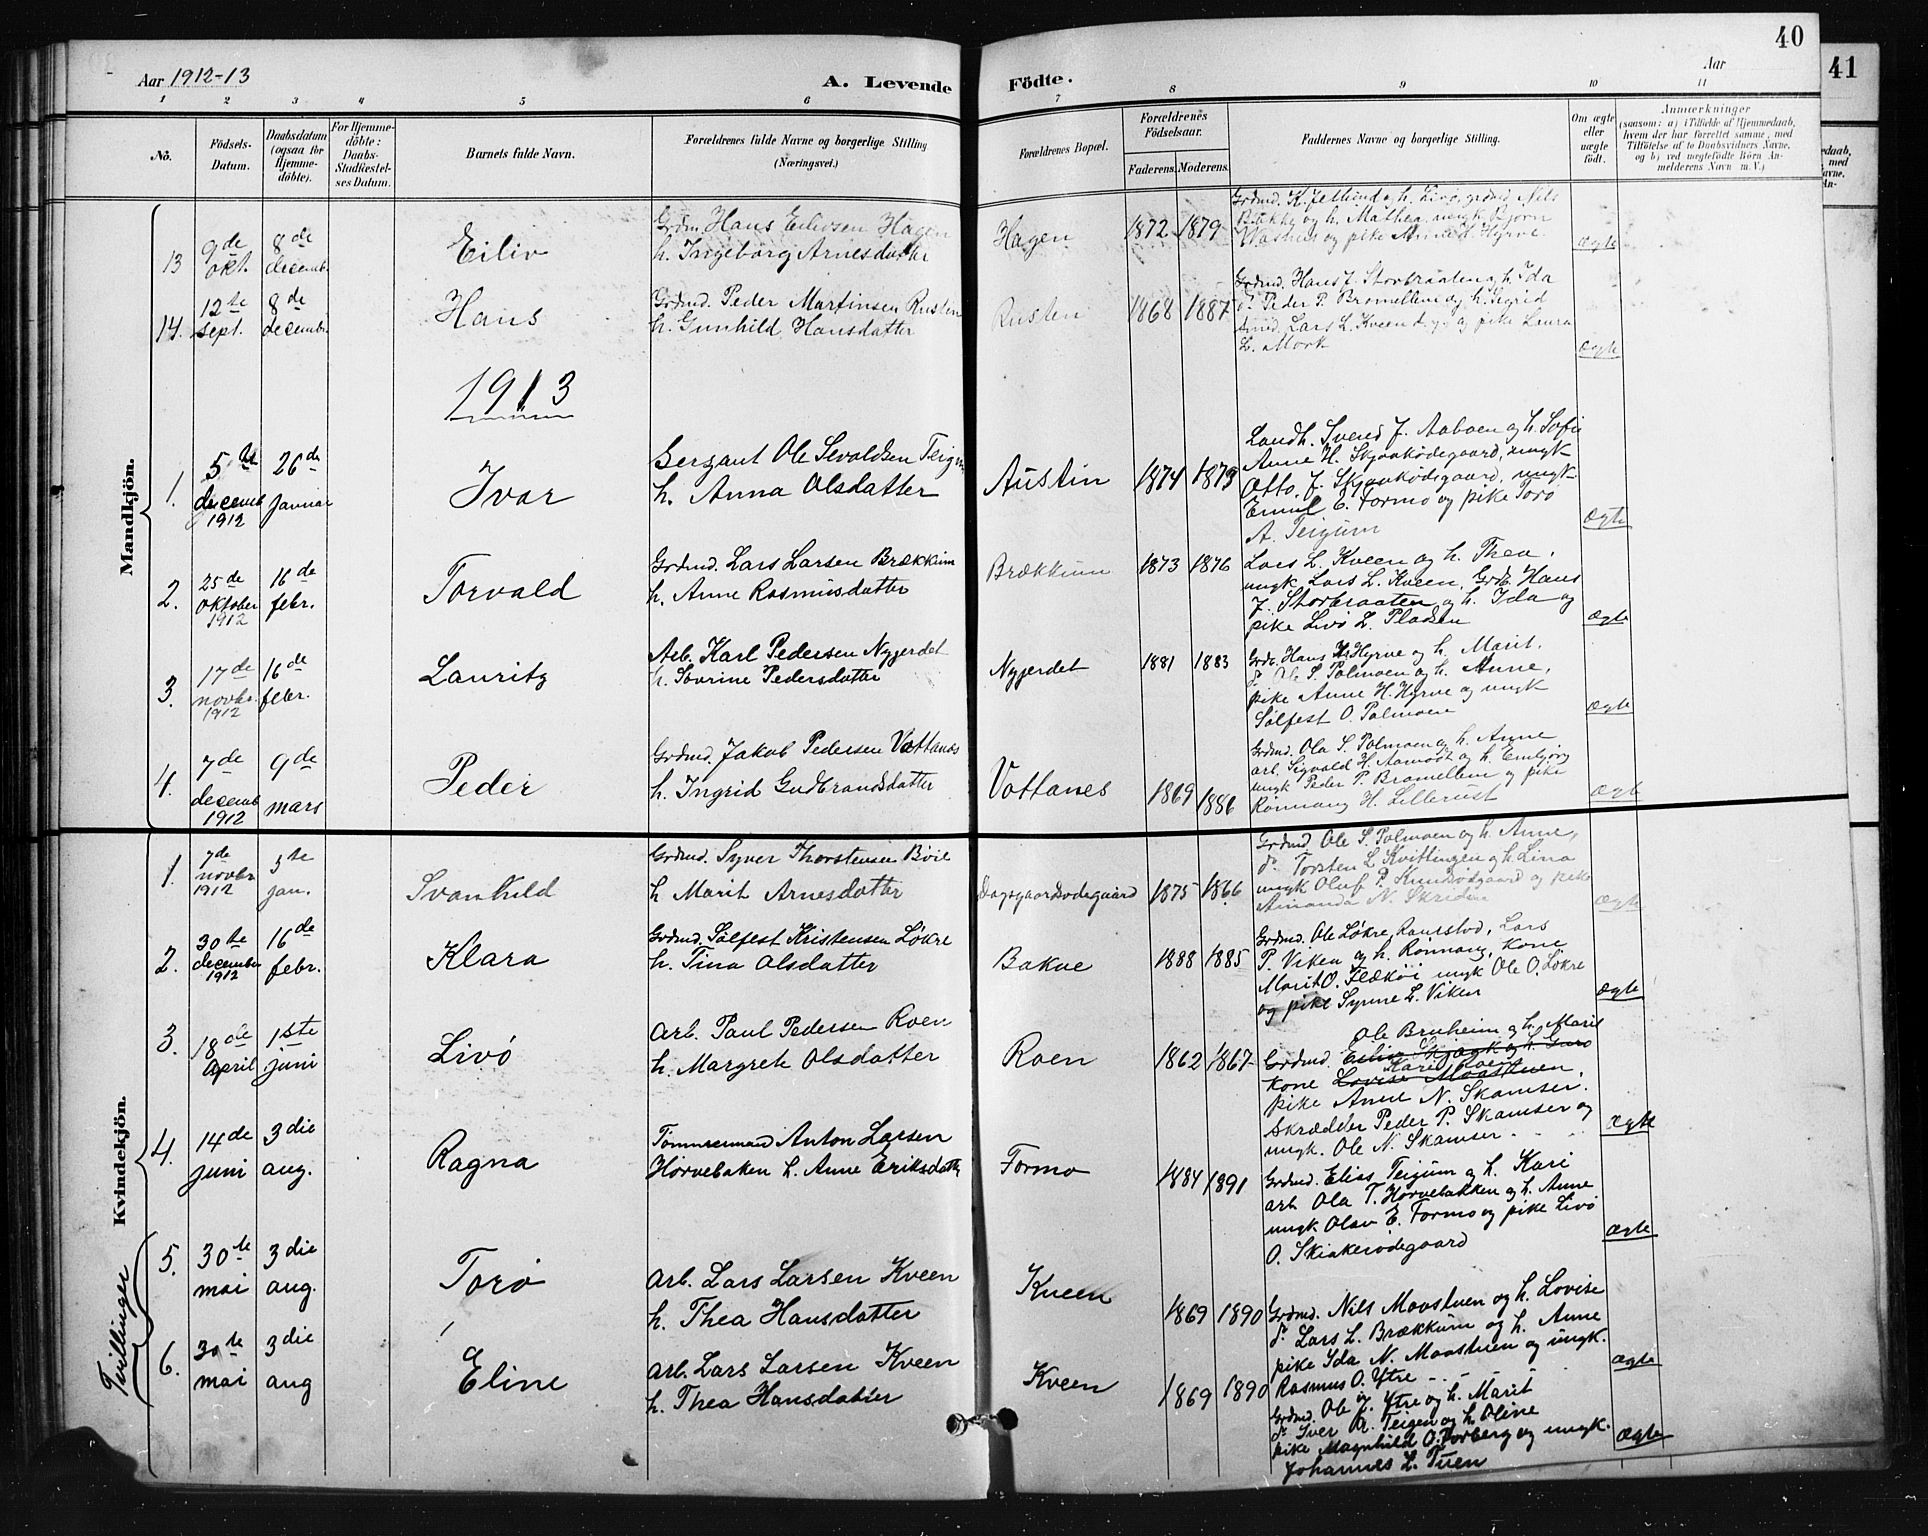 40
41
Aar 1912-13
A. Levende
Födte.
Aar
1 2 3 4 5 6 7 8 9 10 11
No.
Födsels-
Datum.
Daabsdatum
(ogsaa for
Hjemme-
döbte).
For Hjemme-
döbte:
Daabs-
Stadfæstel-
ses Datum.
Barnets fulde Navn.
Forældrenes fulde Navne og borgerlige Stilling
(Næringsvei.)
Forældrenes Bopæl.
Forældrenes
Födselsaar.
Faderens. Moderens.
Faddernes Navne og borgerlige Stilling.
Om ægte
eller
uægte
födt.
Anmærkninger
(saasom: a) i Tilfælde af Hjemmedaab,
hvem der har forrettet samme, med
Tilföielse af to Daabsvidners Navne,
og b) ved uægtefödte Börn An-
melderens Navn m. V.)
Mandkjön.
13
9de okt.
8de decemb.
Eiliv
Grdm. Hans Eilivsen Hagen
h. Ingeborg Arnesdatter
Hagen
1872 1879
Grdmd. K. og h. Livø, grdmd Nils
Bakke og h. Mathea, ungk Bjørn
og pike Anne H. Hyrve.
ægte
14.
12te sept.
8de decemb.
Hans
Grdmd. Peder Martinsen Rusten
h. Gunhild Hansdatter
Rusten
1868 1887
Grdmd. Hans J. Storbraaten og h. Ida
do Peder P. Bromellem og h. Sigrid
Lars L. Kveen og pike Laura
L. Mork
ægte
1913
1.
5te decemb 1912
26de januar
Ivar
Sergant Ole Sevaldsen Teigum
h. Anna Olsdatter
Austin
1874 1879
Landh. Svend J. Aaboen og h. Sofie
Anne H. Skjaakødegaard, ungk
Otto J. Skjaakødegaard, ungk
Emul E. Formo og pike Torø
A. Teigum
ægte
2.
25de oktober 1912
16de febr.
Torvald
Grdmd. Lars Larsen Brækkum
h. Anne Rasmusdatter
Brækkum
1873 1876
Lars L. Kveen og h. Thea,
ungk Lars L. Kveen, Grdb. Hans
J. Storbraaten og h. Ida og
pike Livø L. Pladsen
ægte
3.
17de novbr. 1912
16de febr.
Lauritz
Arb. Karl Pedersen Nygjerdet
h. Søvrine Pedersdatter
Nygjerdet
1881 1883
Grdb. Hans H. Hyrve og h. Marit,
do Ole S. Polmoen og h. Anne,
pike Anne H. Hyrve og ungk
Sølfest O. Polmoen
ægte
4.
7de decemb 1912
9de mars
Peder
Grdmd. Jakob Pedersen Vottanes
h. Ingrid Gudbrandsdatter
Vottanes
1869 1886
Grdmd. Ola S. Polmoen og h. Anne
arb. Sigvald H. Aamodt og h. Embjørg
ungk Peder P. Bromellem og pike
Rønnaug H. Lillerust
ægte
Kvindekjön.
1.
7de novbr 1912
5te jan.
Svanhild
Grdmd. Syver Thorstensen Bøie
h Marit Arnesdatter
Dagsgaardsødegaard
1875 1866
Grdmd Ole S. Polmoen og h. Anne,
do Torsten L. Kvittingen og h. Lina
ungk Oluf P. og pike
Amanda N. Skriden
ægte
2.
30te december 1912
16de febr.
Klara
Grdmd. Sølfest Kristensen Løkre
h. Tina Olsdatter
Bakne
1888 1885
Grdmd. Ole Løkre, Ranstad, Lars
P. Viken og h. Rønnaug, kone
Marit O. Flækøi ungk Ole O. Løkre
og pike Synne L. Viken
ægte
3.
18de april
1ste juni
Livø
Arb. Paul Pedersen Roen
h. Margrete Olsdatter
Roen
1862 1867
Ole Bruheim og h. Marit
Grdmd. Eiliv Skjaak og h. Guro
Kari Roen
kone Lovise Maastuen,
pike Anne N. Skamser.
Skrædder Peder P. Skamser og
ungk. Ole N. Skamser.
ægte
4.
14de juni
3die aug.
Ragna
Tømmermand Anton Larsen
Hørvebaken h. Anne Eriksdatter
Formo
1884 1891
Grdmd. Elias Teigum og h. Kari
arb. Ola T. Hørvebakken og h. Anne
ungk Olav E. Formo og pike Livø
O. Skjakerødegaard
ægte
Tvillinger
5.
30te mai
3die aug.
Torø
Arb. Lars Larsen Kveen
h. Thea Hansdatter
Kveen
1869 1890
Grdmd. Nils Maastuen og h. Lovise
do Lars L. Brækkum og h. Anne
pike Ida N. Maastuen og ungk.
Rasmus O. Ytre
ægte
6.
30te mai
3die aug
Eline
Arb. Lars Larsen Kveen
h. Thea Hansdatter
Kveen
1869 1890
Grdmd. Ole J. Ytre og h. Marit
do Iver R. Teigen og h. Oline
pike Magnhild O. Forberg og ungk.
Johannes L. Tuen
ægte